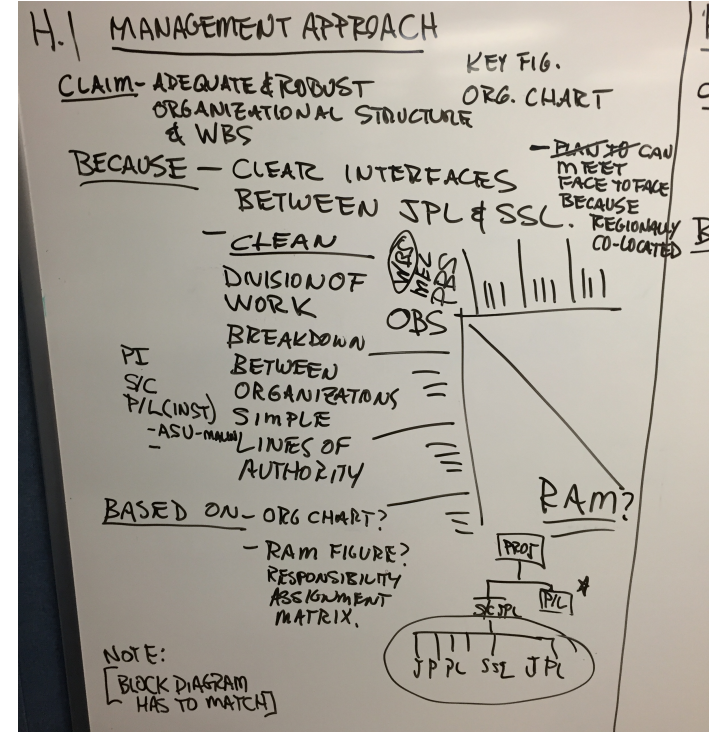 H.1 MANAGEMENT APPROACH
CLAIM - ADEQUATE & ROBUST
ORGANIZATIONAL STRUCTURE
& WBS
KEY FIG.
ORG. CHART
BECAUSE - CLEAR INTERFACES
BETWEEN JPL & SSL.
- PLAN TO CAN
MEET
FACE TO FACE
BECAUSE
REGIONALLY
CO-LOCATED
- CLEAN
DIVISION OF
WORK
BREAKDOWN
BETWEEN
ORGANIZATIONS
SIMPLE
LINES OF
AUTHORITY
WBS
MEL
PBS
OBS
PI
S/C
P/L (INST)
- ASU -
-
RAM?
BASED ON - ORG CHART?
- RAM FIGURE?
RESPONSIBILITY
ASSIGNMENT
MATRIX.
PROJ
SC JPL
P/L *
JP PL SSL JPL
NOTE:
[BLOCK DIAGRAM
HAS TO MATCH]